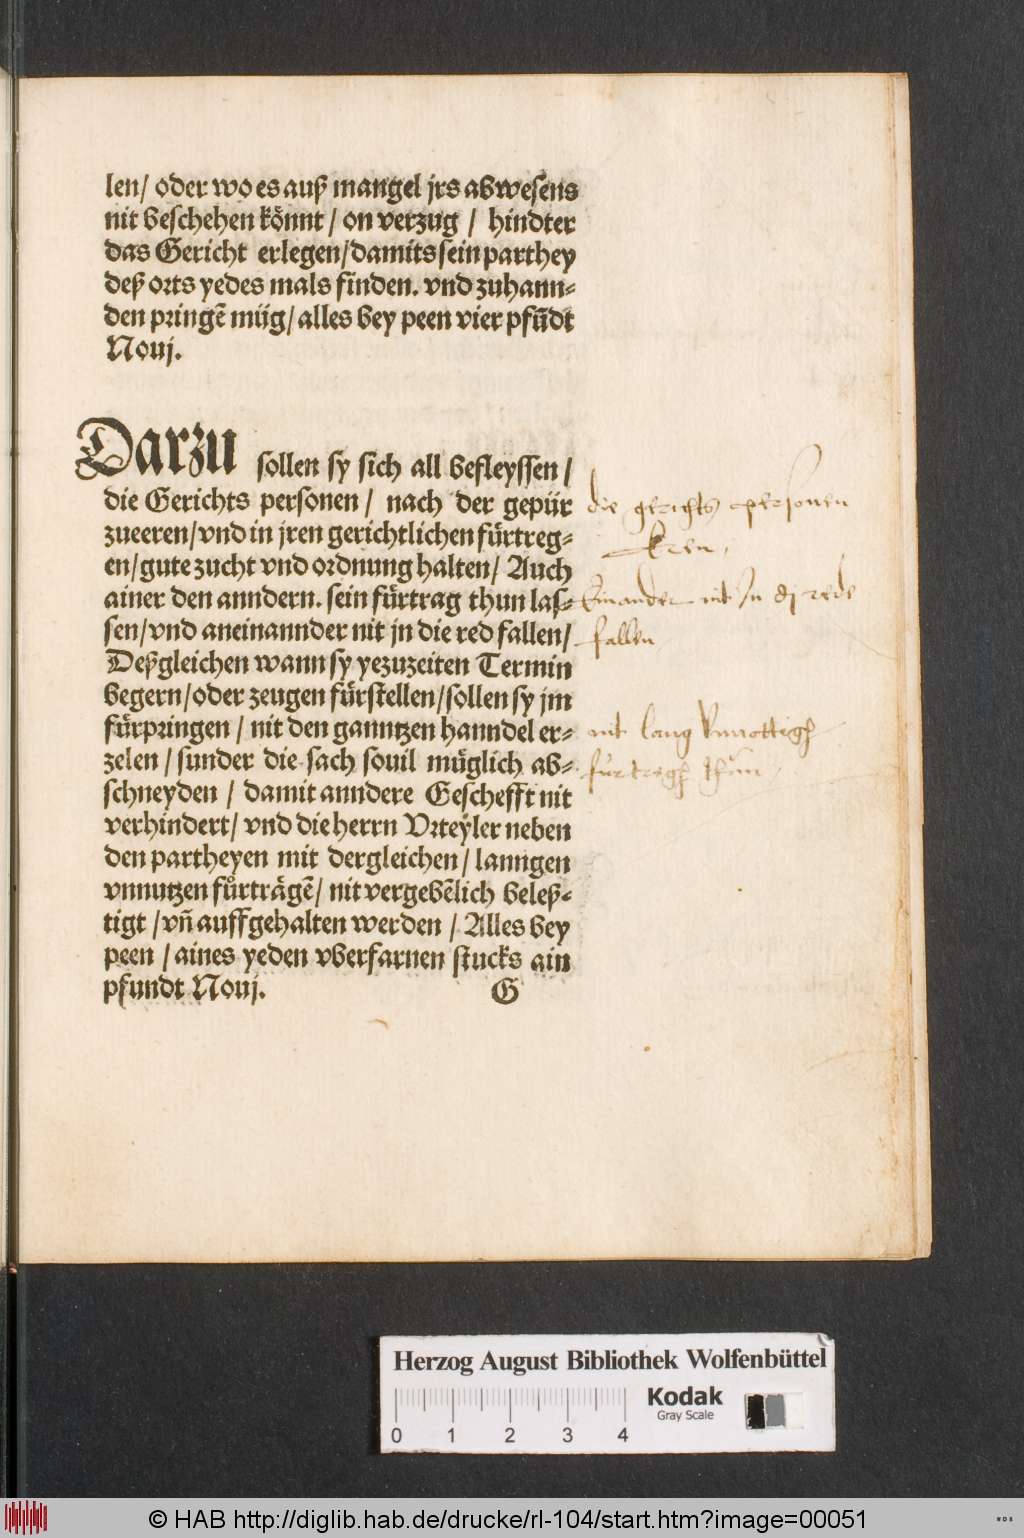 len/ oder wo es auß mangel jrs abwesens
nit beschehen könnt / on verzug / hindter
das Gericht erlegen/damits sein parthey
deß orts yedes mals finden. vnd zuhann⸗
den pringẽ müg/alles bey peen vier pfũdt
Nouj.
Darzu sollen sy sich all befleyssen /
die Gerichts personen / nach der gepür
zueeren/vnd in jren gerichtlichen fürtreg⸗
en/gute zucht vnd ordnung halten/ Auch
ainer den anndern. sein fürtrag thun las⸗
sen/vnd aneinannder nit jn die red fallen/
Deßgleichen wann sy yezuzeiten Termin
begern/oder zeugen fürstellen/sollen sy jm
fürpringen / nit den ganntzen hanndel er⸗
zelen / sunder die sach souil müglich ab⸗
schneyden / damit anndere Geschefft nit
verhindert/ vnd die herrn Vrteyler neben
den partheyen mit dergleichen / lanngen
vnnutzen fůrträgẽ/ nit vergebẽlich beleß⸗
tigt /vñ auffgehalten werden / Alles bey
peen / aines yeden vberfarnen stucks ain
pfundt Nouj. G
die gerichts personen
Eren
Einander nit In di rede
fallen
nit lang
furtregh thun
Herzog August Bibliothek Wolfenbüttel
Kodak
Gray Scale
0 1 2 3 4
© HAB http://diglib.hab.de/drucke/rl-104/start.htm?image=00051